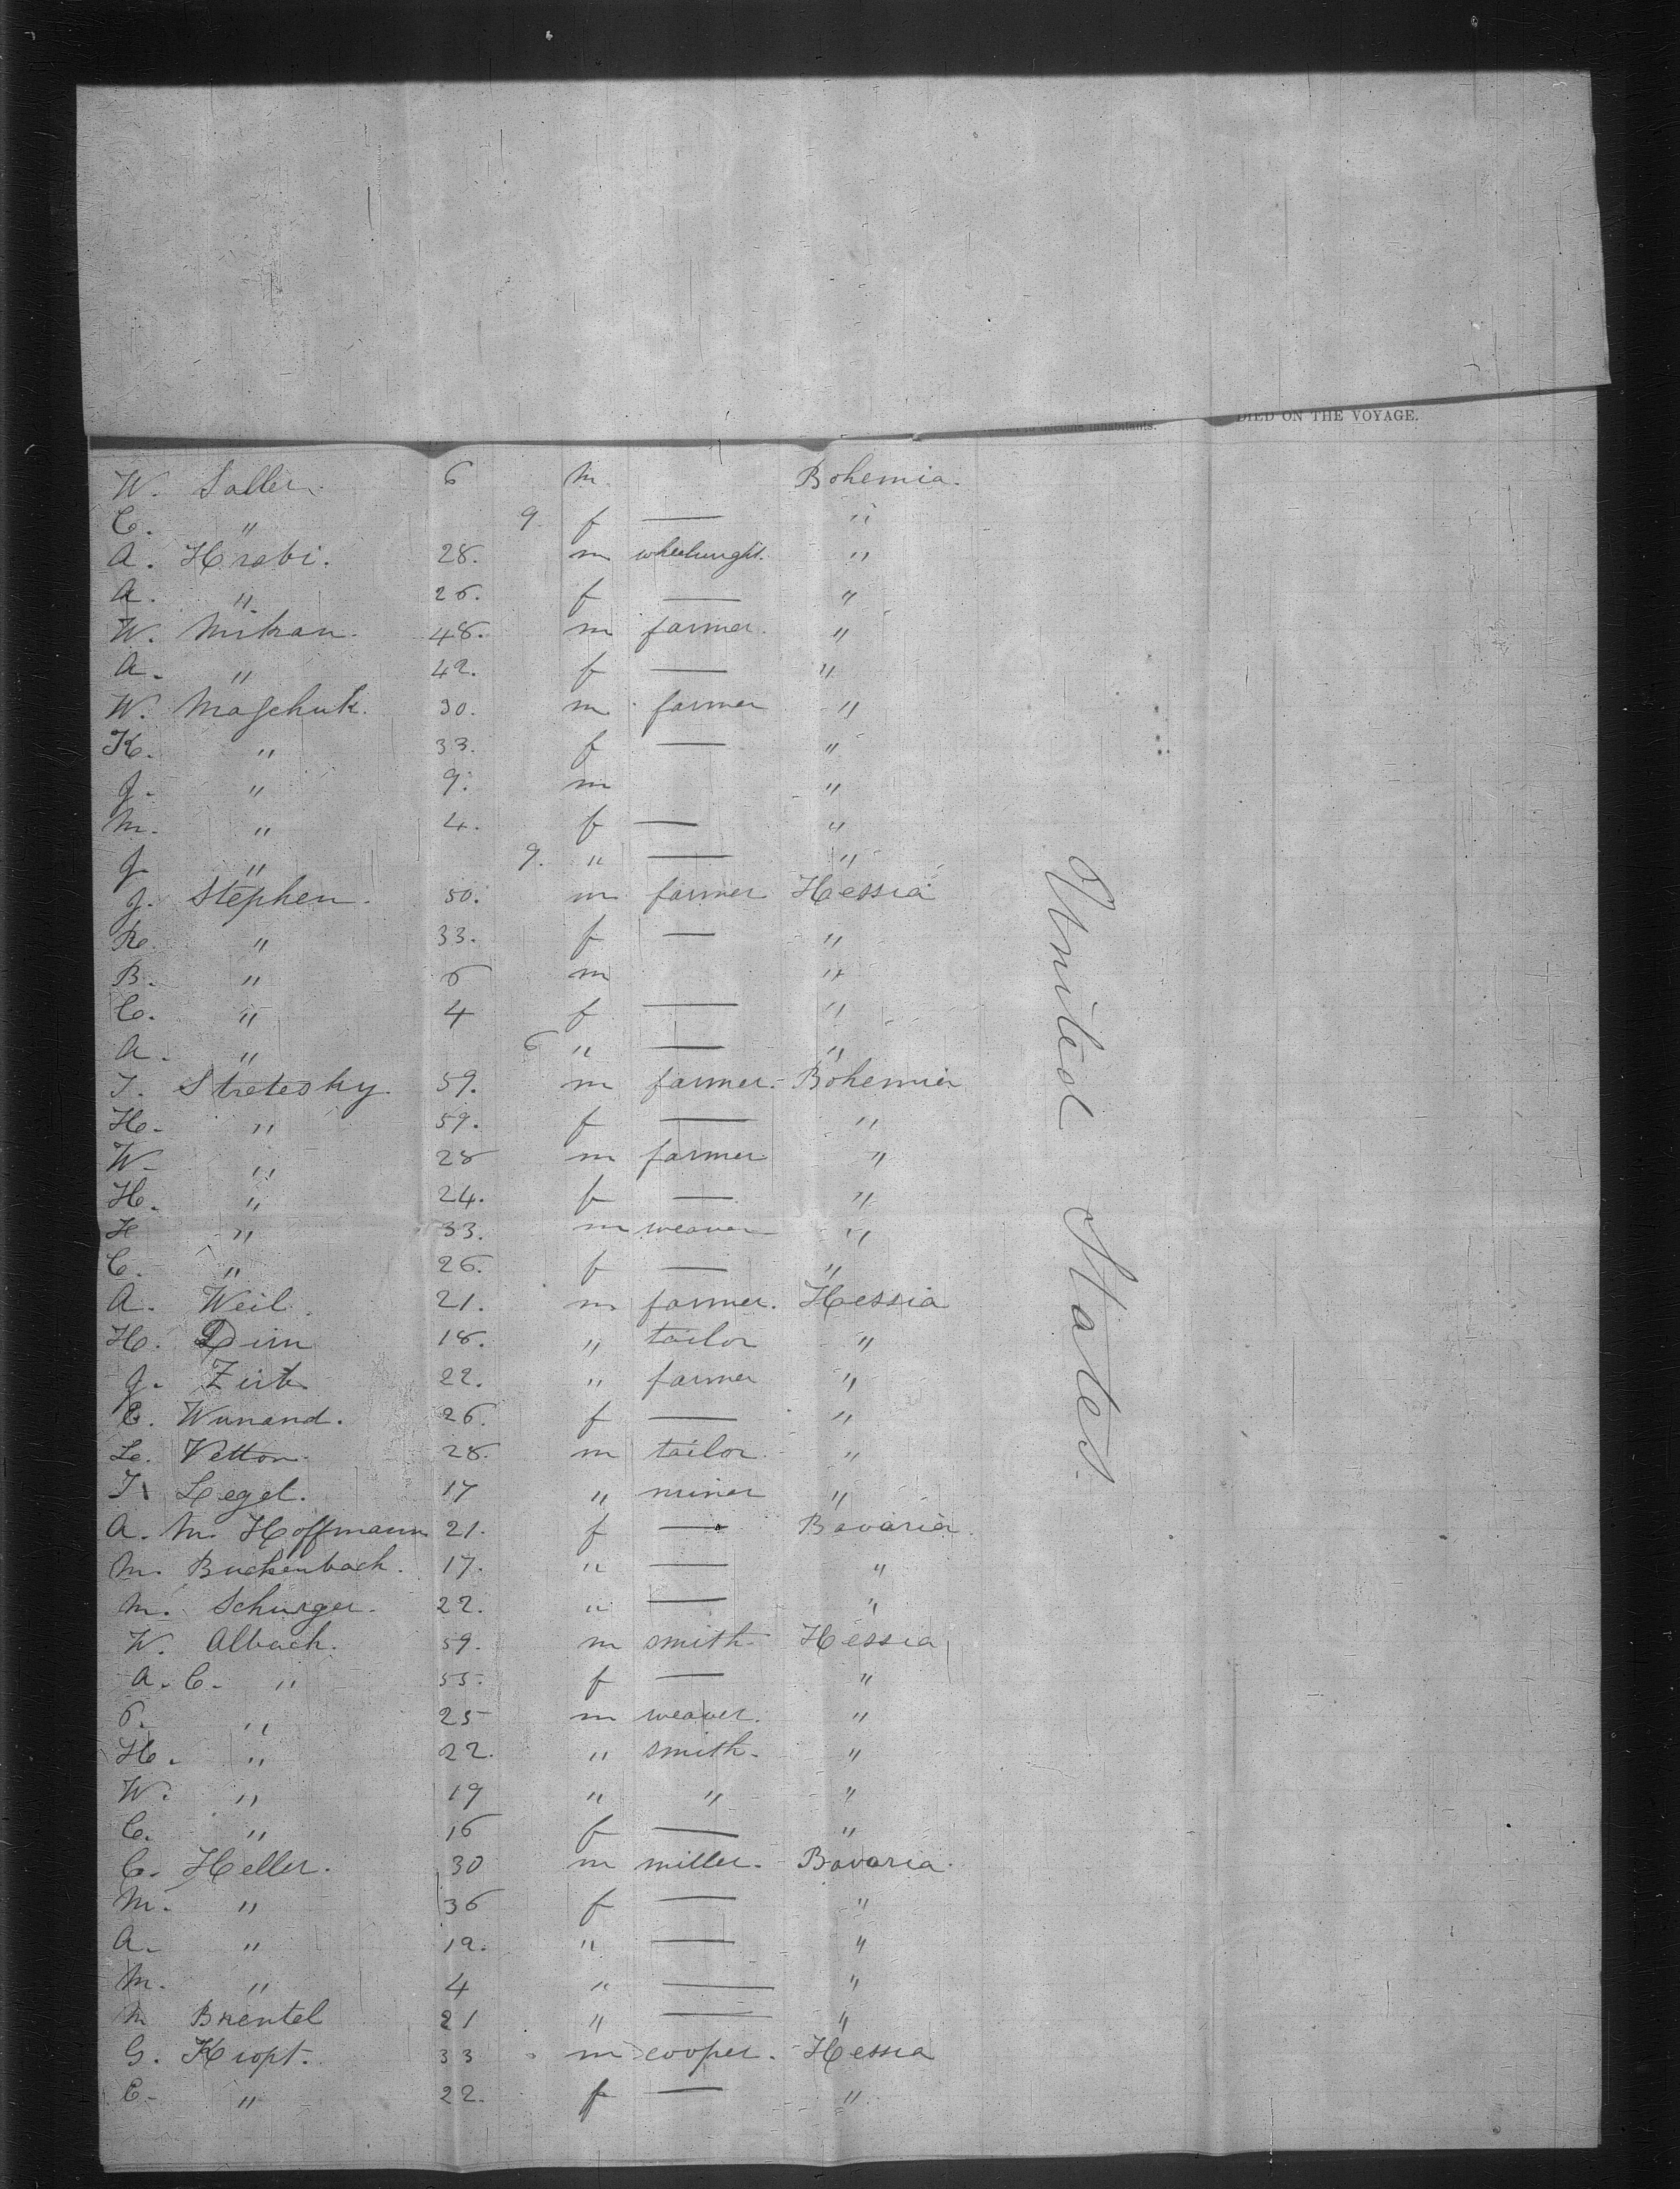 inhabitants. DIED ON THE VOYAGE.
W. Saller. 6 m. Bohemia.
C. " 9. f — "
A. Hrabi. 28. m wheelwright. "
A. " 26. f — "
W. Mikan. 48. m farmer. "
A. " 42. f — "
W. Maschuk. 30. m farmer "
K. " 33. f — "
J. " 9. m "
M. " 4. f — "
J " 9. " — "
J. Stephen. 50. m farmer Hessia
K. " 33. f — "
B. " 6 m "
C. " 4 f — "
A. " 6 " — "
J. Stretesky. 59. m farmer. Bohemia
H. " 59. f — "
W. " 28 m farmer "
H. " 24. f — "
H " 33. m weaver "
C. " 26. f — "
A. Weil. 21. m farmer. Hessia
H. Dim 18. " tailor "
J. Zirb 22. " farmer "
C. Wunand. 26. f — "
L. Vetton. 28. m tailor. "
J. Legel. 17 " miner "
A. M. Hoffmann 21. f — Bavaria.
M. Buchenbach. 17. " — "
M. Schurger. 22. " — "
W. Albach. 59. m smith. Hessia
A. C. " 55. f — "
P. " 25 m weaver. "
H. " 22. " smith. "
W. " 19 " " "
C. " 16 f — "
C. Heller. 30 m miller. Bavaria.
M. " 36 f — "
A. " 12. " — "
M. " 4 " — "
M Brentel 21 " — "
G. Kropt. 33 m cooper. Hessia
C. " 22. f — "
United States.